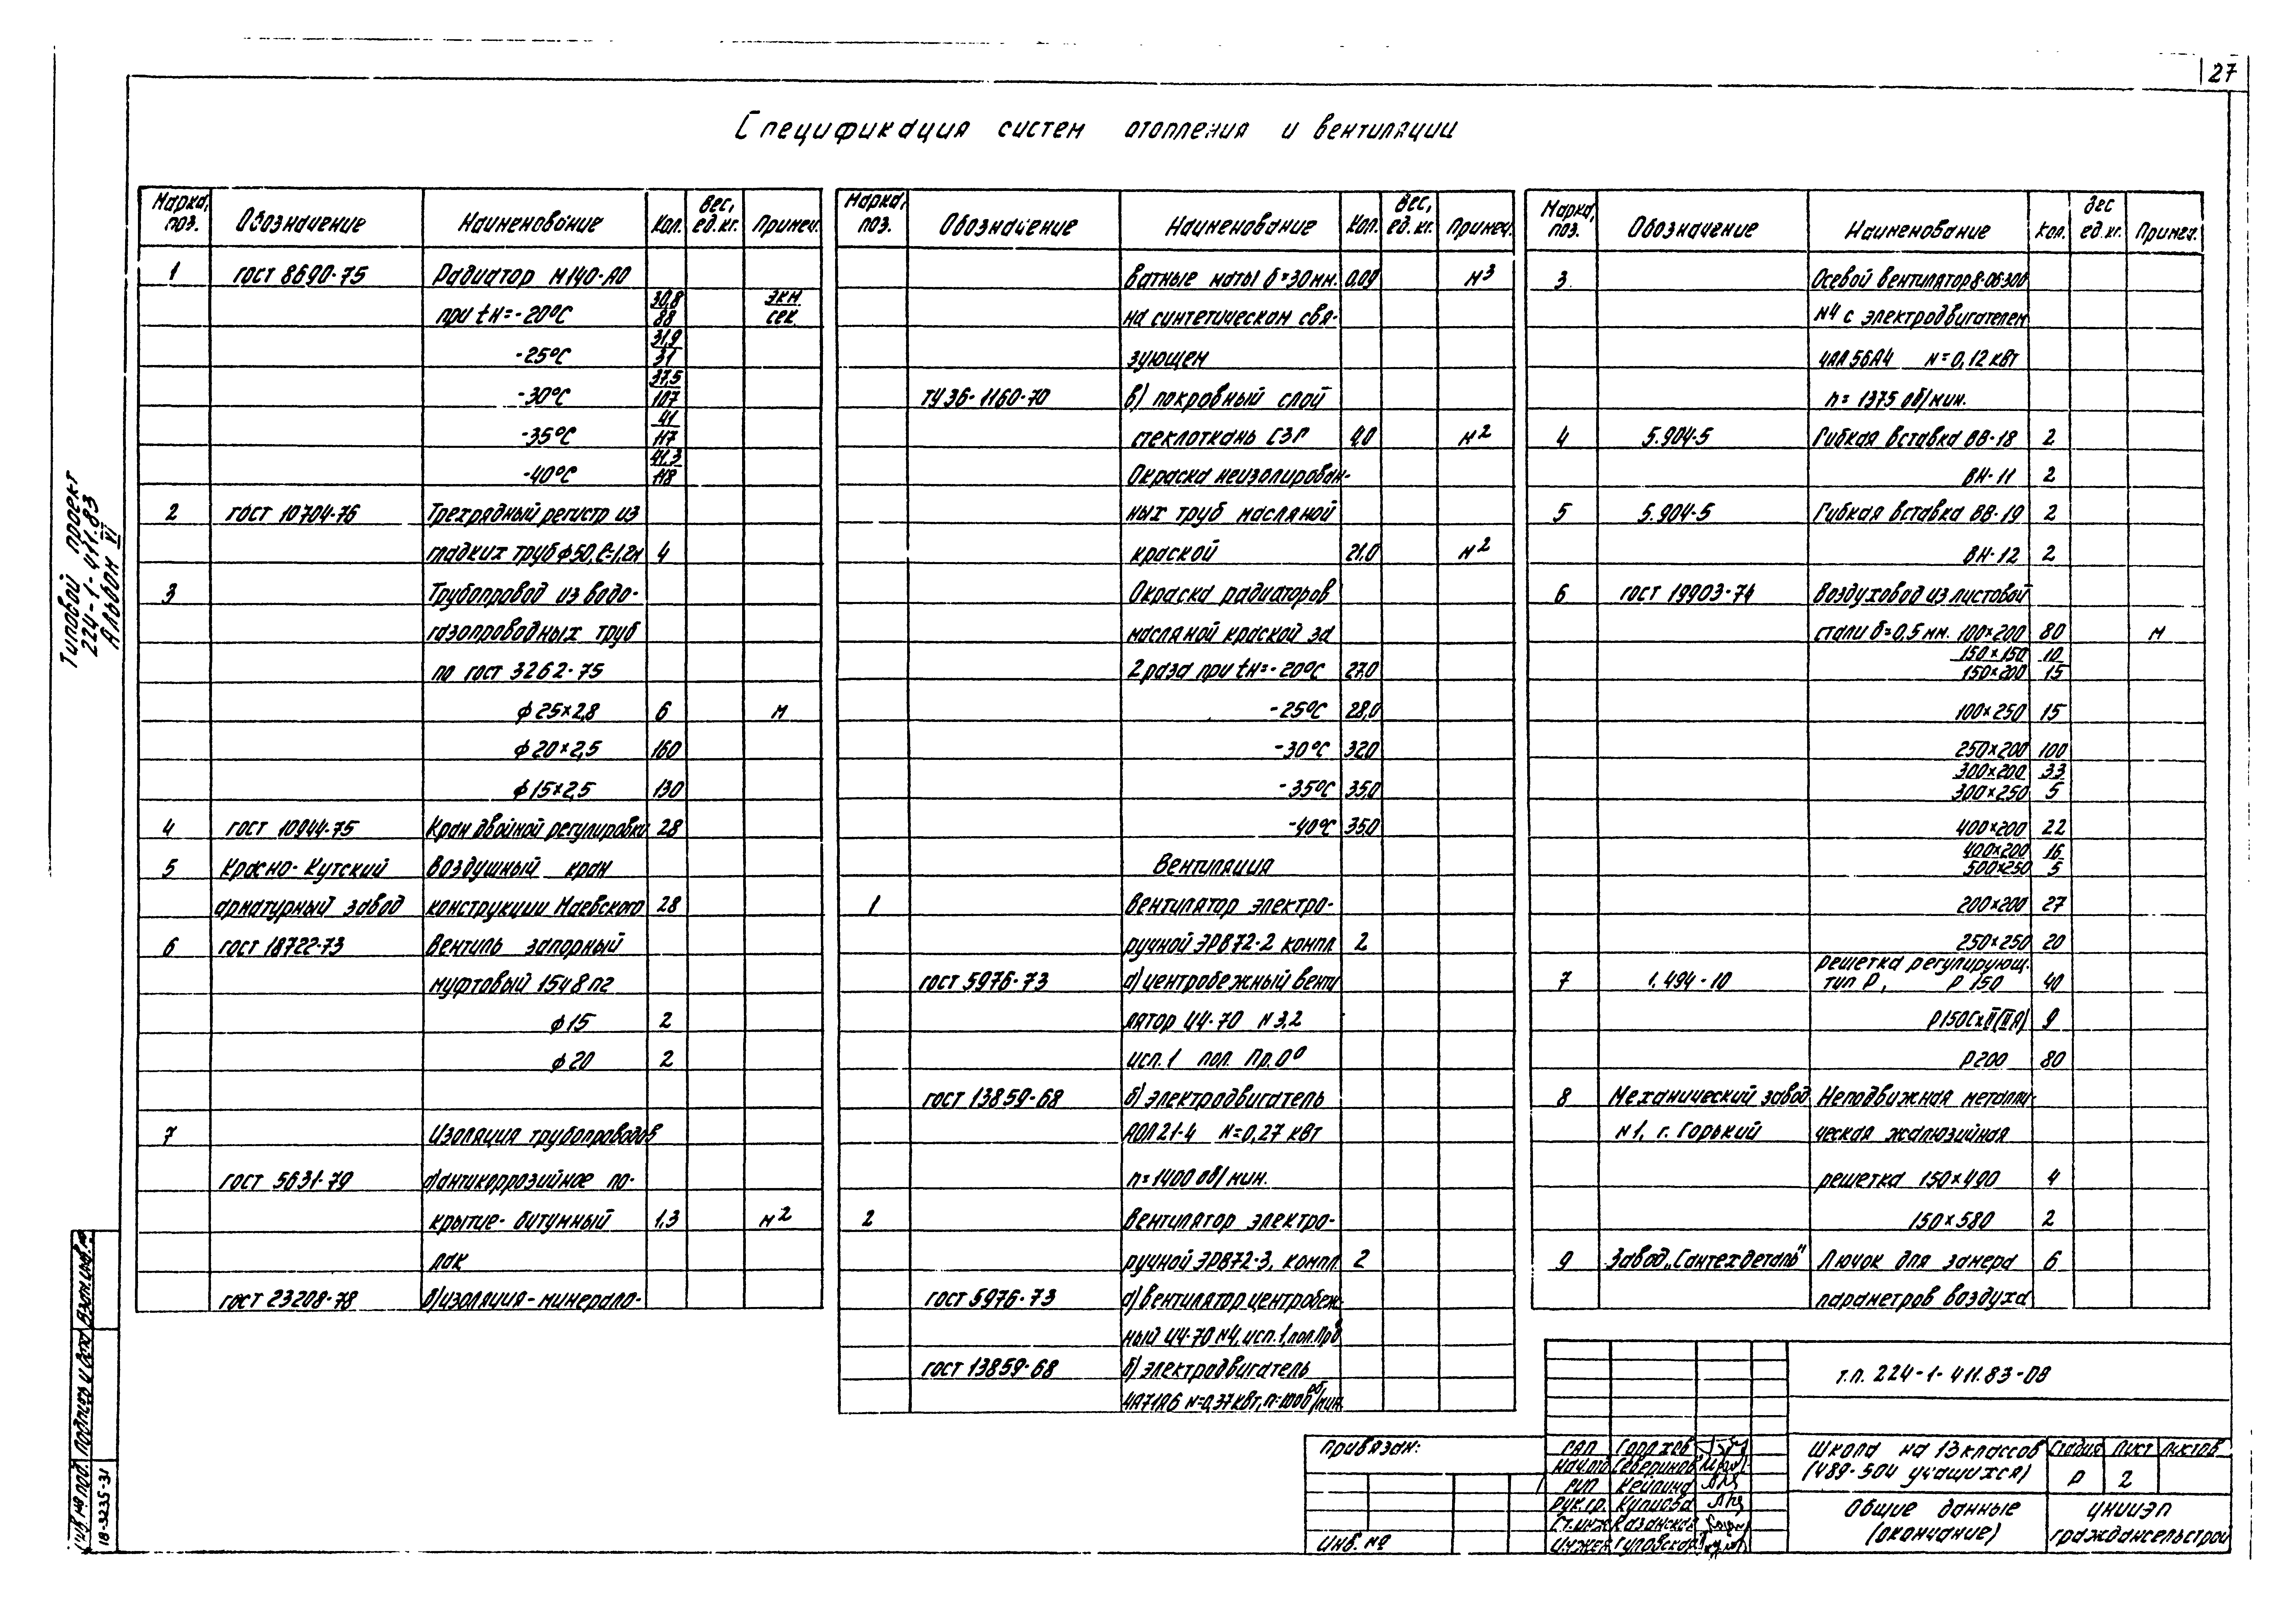 27
Спецификация систем отопления и вентиляции
Марка, поз. Обозначение Наименование Кол. Вес, ед.кг. Примеч.
1 ГОСТ 8690-75 Радиатор М140-АО
при tн=-20°С 30,8/88 экм/сек
-25°С 31,9/31
-30°С 37,5/107
-35°С 41/117
-40°С 41,3/118
2 ГОСТ 10704-76 Трехрядный регистр из
гладких труб ф50, ℓ=1,2м 4
3 Трубопровод из водо-
газопроводных труб
по ГОСТ 3262-75
ф25×2,8 6 м
ф20×2,5 160
ф15×2,5 130
4 ГОСТ 10944-75 Кран двойной регулировки 28
5 Красно-Кутский Воздушный кран
арматурный завод конструкции Маевского 28
6 ГОСТ 18722-73 Вентиль запорный
муфтовый 15ч8пг
ф15 2
ф20 2
7 Изоляция трубопроводов
ГОСТ 5631-79 а)антикоррозийное по-
крытие-битумный 1,3 м²
лак
ГОСТ 23208-78 б)изоляция-минерало-
Марка, поз. Обозначение Наименование Кол. Вес, ед.кг. Примеч.
ватные маты δ=30мм. 0,09 м³
на синтетическом свя-
зующем
ТУ 36-1160-70 в) покровный слой
стеклоткань СЗГ 4,0 м²
Окраска неизолирован-
ных труб масляной
краской 21,0 м²
Окраска радиаторов
масляной краской за
2 раза при tн=-20°С 27,0
-25°С 28,0
-30°С 32,0
-35°С 35,0
-40°С 35,0
Вентиляция
1 Вентилятор электро-
ручной ЭРВ72-2 компл 2
ГОСТ 5976-73 а)центробежный венти
лятор Ц4-70 N3,2
исп.1 пол. Пр.0°
ГОСТ 13859-68 б)электродвигатель
АОЛ21-4 N=0,27 кВт
n=1400 об/мин.
2 Вентилятор электро-
ручной ЭРВ72-3, компл 2
ГОСТ 5976-73 а)вентилятор центробеж-
ный Ц4-70 N4, исп.1, пол.Пр0°
ГОСТ 13859-68 б)электродвигатель
4А71А6 N=0,37кВт, n=1000 об/мин
Марка, поз. Обозначение Наименование Кол. Вес ед.кг. Примеч.
3 Осевой вентилятор 8-06-300
N4 с электродвигателем
4АА56А4 N=0,12кВт
n=1375 об/мин.
4 5.904-5 Гибкая вставка ВВ-18 2
ВН-11 2
5 5.904-5 Гибкая вставка ВВ-19 2
ВН-12 2
6 ГОСТ 19903-74 Воздуховод из листовой
стали δ=0,5 мм. 100×200 80 м
150×150 10
150×200 15
100×250 15
250×200 100
300×200 33
300×250 5
400×200 22
400×200 16
500×250 5
200×200 27
250×250 20
7 1.494-10 решетка регулирующ.
тип Р, Р 150 40
Р150СхII(IIЯ) 9
Р200 80
8 Механический завод Неподвижная металли-
N1, г. Горький ческая жалюзийная
решетка 150×490 4
150×580 2
9 Завод „Сантехдеталь" Лючок для замера 6
параметров воздуха
Типовой проект
224-1-411.83
Альбом VI
Инв.№ подл. Подпись и дата Взам.инв.№
18-3235-31
Привязан:
Инв. №
ГАП Горлхов
Нач.отд Северинов
ГИП Кейлина
Рук.гр. Кулиева
Ст.инж Казанская
Инжен Гуловская
т.п. 224-1-411.83-ОВ
Школа на 13 классов
(489-504 учащихся)
Стадия Лист Листов
Р 2
Общие данные
(окончание)
ЦНИИЭП
граждансельстрой